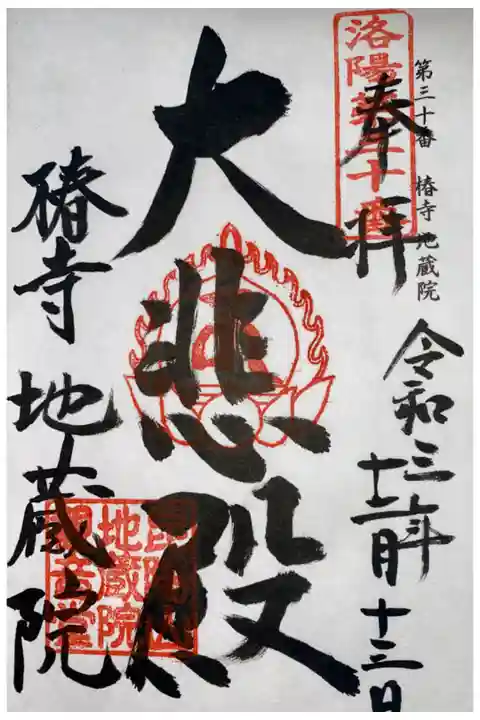 第三十番 椿寺 地蔵院
奉拝
洛陽第三十番
令和三年
十二月十三日
大悲殿
椿寺 地蔵院
地蔵院
観音堂